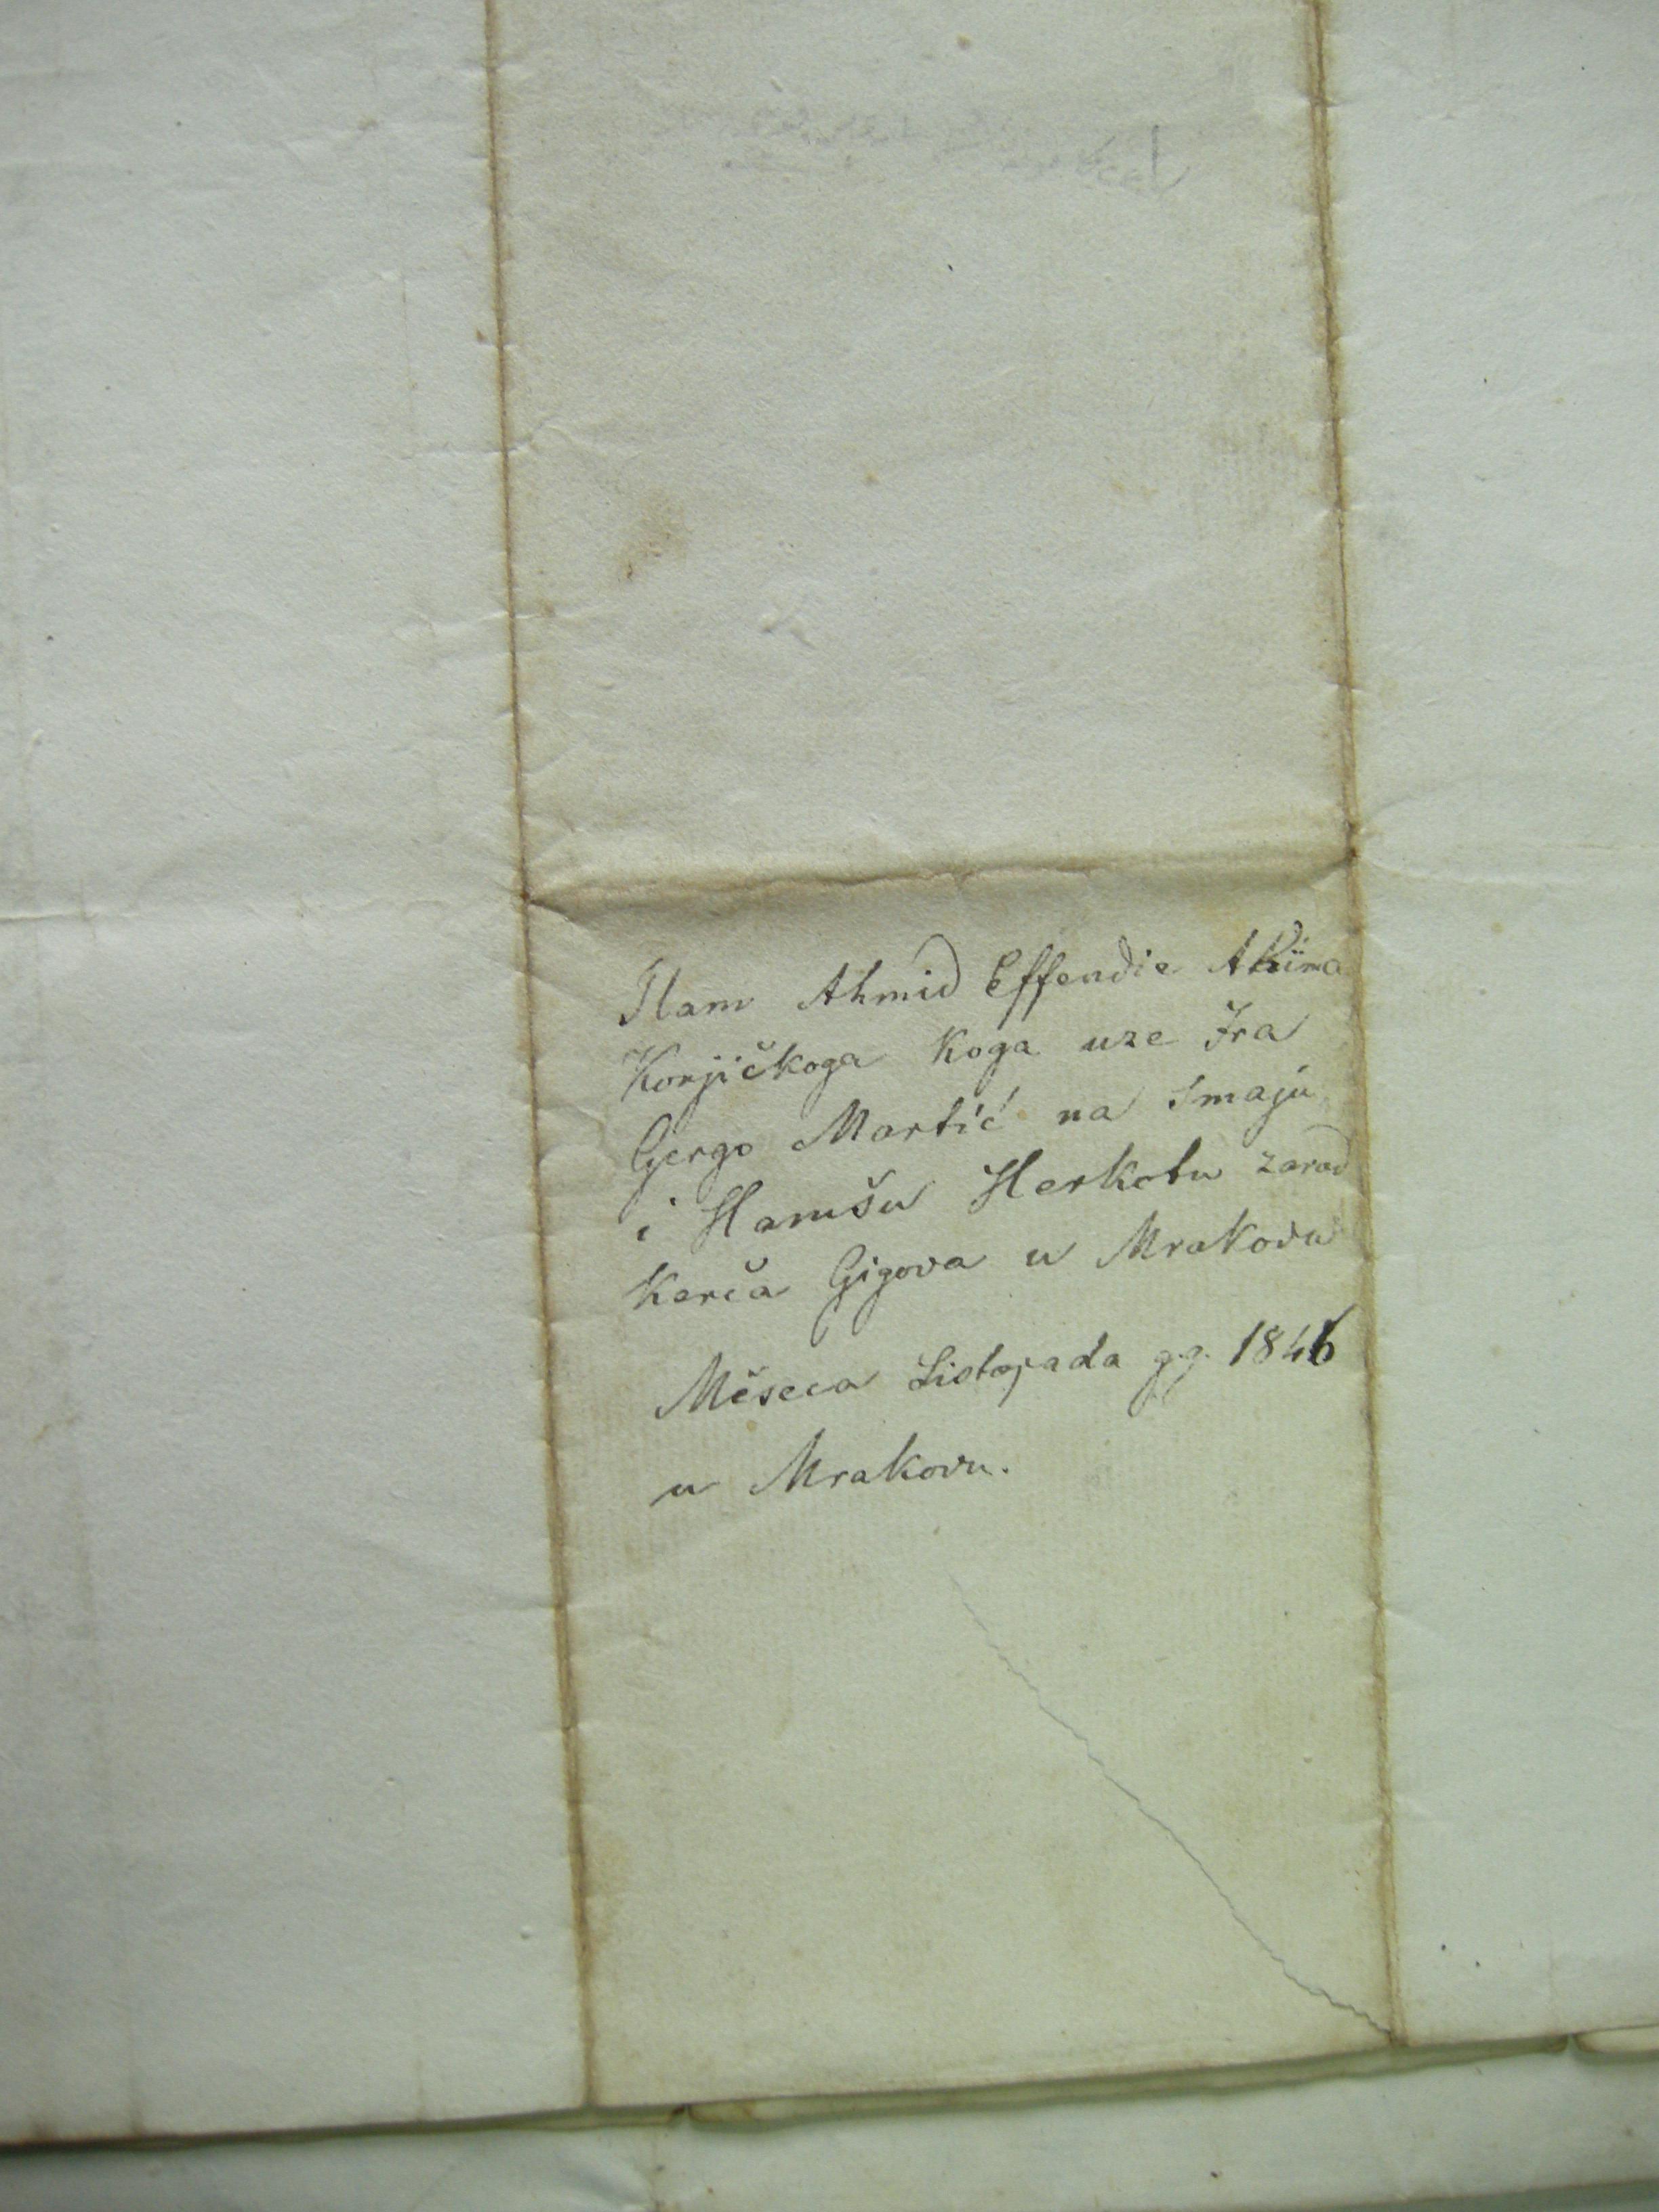 Ilam Ahmid Effendie Akima
Konjičkoga Koga uze Fra
Gjergo Martić na Smaju
i Hamšu Herkotu zarad
Kerča Gigova u Mrakovu
Měseca Listopada g.g. 1846
u Mrakovu.